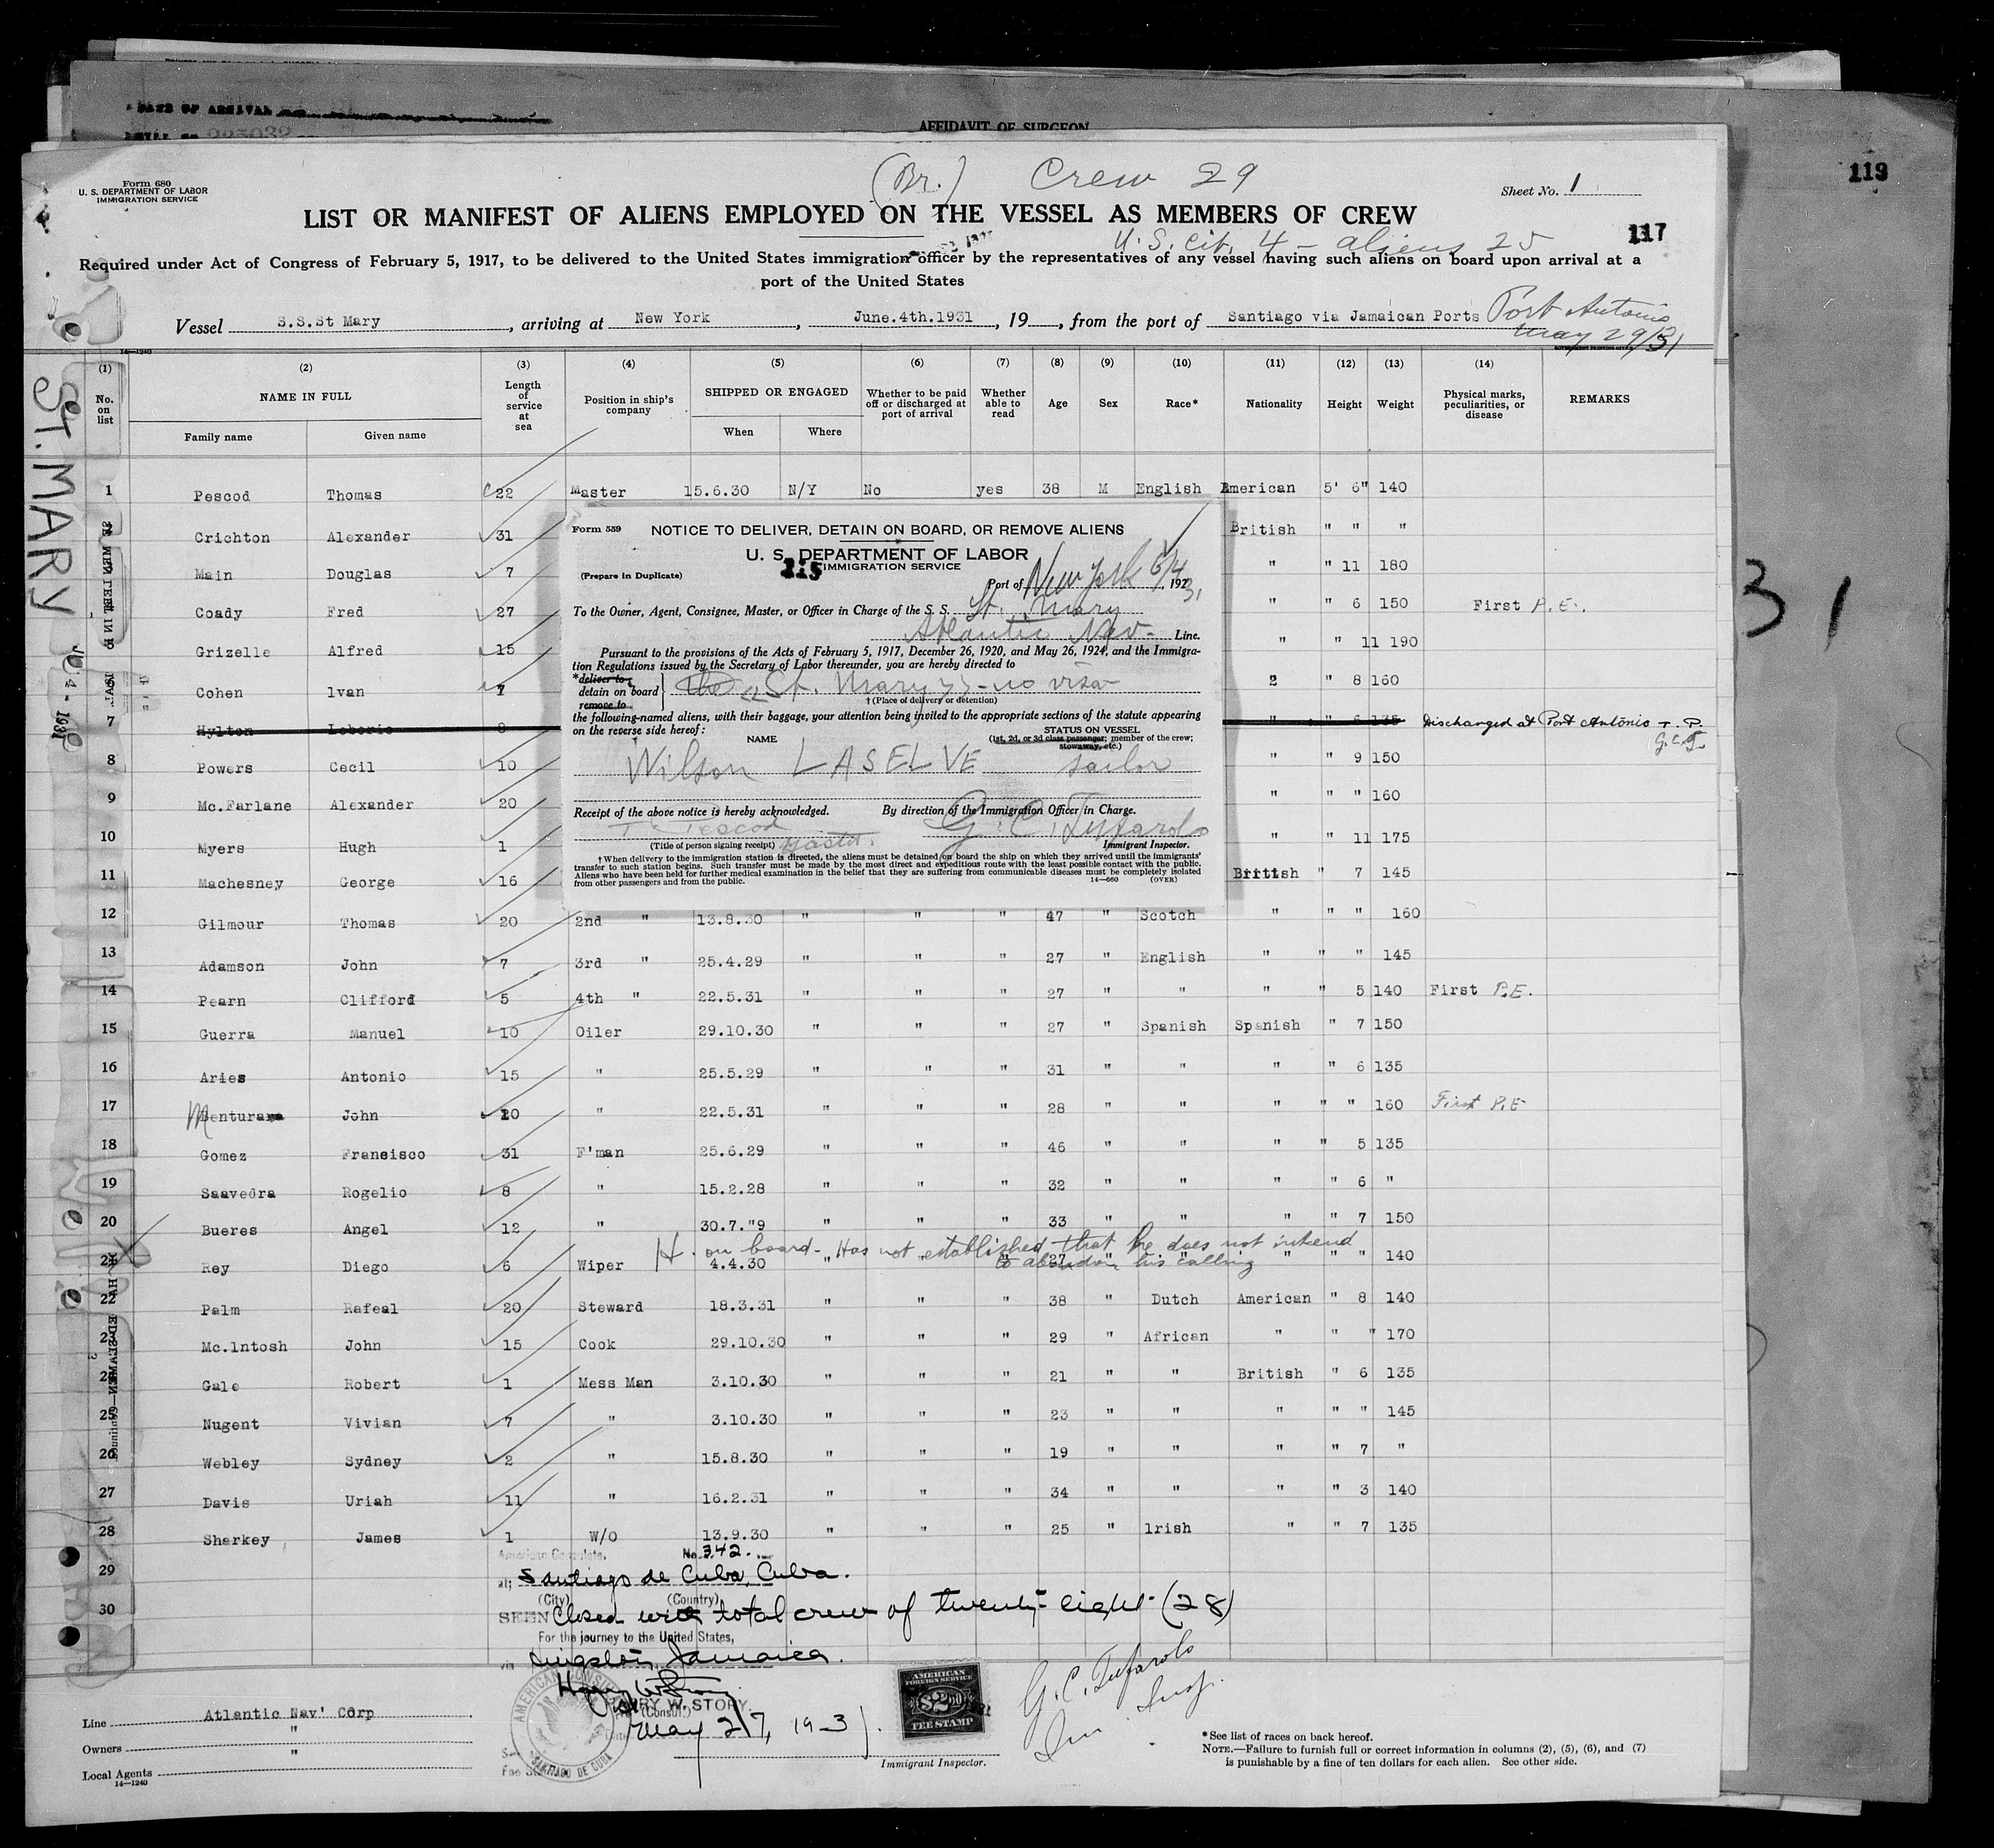 DATE OF ARRIVAL
225032
AFFIDAVIT OF SURGEON
119
31
Form 680
U. S. DEPARTMENT OF LABOR
IMMIGRATION SERVICE
(Br.) Crew 29
Sheet No. 1
LIST OR MANIFEST OF ALIENS EMPLOYED ON THE VESSEL AS MEMBERS OF CREW
117
U.S. Cit. 4 - aliens 25
Required under Act of Congress of February 5, 1917, to be delivered to the United States immigration officer by the representatives of any vessel having such aliens on board upon arrival at a
port of the United States
Vessel S.S.St Mary, arriving at New York, June.4th.1931, 19, from the port of Santiago via Jamaican Ports Port Antonio
May 29/31
14—1240
ST. MARY
(1) (2) (3) (4) (5) (6) (7) (8) (9) (10) (11) (12) (13) (14)
No. on list NAME IN FULL Length of service at sea Position in ship's company SHIPPED OR ENGAGED Whether to be paid off or discharged at port of arrival Whether able to read Age Sex Race* Nationality Height Weight Physical marks, peculiarities, or disease REMARKS
Family name Given name When Where
1 Pescod Thomas 22 Master 15.6.30 N/Y No yes 38 M English American 5' 6" 140
2 Crichton Alexander 31 British " " "
Main Douglas 7 " " 11 180
Coady Fred 27 " " 6 150 First P.E.
Grizelle Alfred 15 " " 11 190
Cohen Ivan 7 " 8 160
7 Hylton Leborio 8 " " 6 135 Discharged at Port Antonio T.P.
G.C.T.
8 Powers Cecil 10 " " 9 150
9 Mc.Farlane Alexander 20 " " " 160
10 Myers Hugh 1 " " 11 175
11 Machesney George 16 British " 7 145
Form 559
NOTICE TO DELIVER, DETAIN ON BOARD, OR REMOVE ALIENS
U. S. DEPARTMENT OF LABOR
IMMIGRATION SERVICE
(Prepare in Duplicate)
Port of New York 6/4, 1923 31
To the Owner, Agent, Consignee, Master, or Officer in Charge of the S. S. St. Mary
Atlantic Nav. Line.
Pursuant to the provisions of the Acts of February 5, 1917, December 26, 1920, and May 26, 1924, and the Immigra-
tion Regulations issued by the Secretary of Labor thereunder, you are hereby directed to
*deliver to
detain on board
remove to
the "St. Mary" - no visa
† (Place of delivery or detention)
the following-named aliens, with their baggage, your attention being invited to the appropriate sections of the statute appearing
on the reverse side hereof:
NAME
STATUS ON VESSEL
(1st, 2d, or 3d class passenger; member of the crew;
stowaway, etc.)
Wilson LASELVE sailor
Receipt of the above notice is hereby acknowledged. By direction of the Immigration Officer in Charge.
T. Pescod G. C. Tufarolo
(Title of person signing receipt) Master. Immigrant Inspector.
† When delivery to the immigration station is directed, the aliens must be detained on board the ship on which they arrived until the immigrants'
transfer to such station begins. Such transfer must be made by the most direct and expeditious route with the least possible contact with the public.
Aliens who have been held for further medical examination in the belief that they are suffering from communicable diseases must be completely isolated
from other passengers and from the public. 14—660 (OVER)
12 Gilmour Thomas 20 2nd " 13.8.30 " " " 47 " Scotch " " " 160
13 Adamson John 7 3rd " 25.4.29 " " " 27 " English " " " 145
14 Pearn Clifford 5 4th " 22.5.31 " " " 27 " " " " 5 140 First P.E.
15 Guerra Manuel 10 Oiler 29.10.30 " " " 27 " Spanish Spanish " 7 150
16 Aries Antonio 15 " 25.5.29 " " " 31 " " " " 6 135
17 Menturana John 20 " 22.5.31 " " " 28 " " " " " 160 First P.E
18 Gomez Fransisco 31 F'man 25.6.29 " " " 46 " " " " 5 135
19 Saavedra Rogelio 8 " 15.2.28 " " " 32 " " " " 6 "
20 Bueres Angel 12 " 30.7."9 " " " 33 " " " " 7 150
H. on board - Has not established that he does not intend
to abandon his calling
21 Rey Diego 6 Wiper 4.4.30 " " " 27 " " " " " 140
22 Palm Rafeal 20 Steward 18.3.31 " " " 38 " Dutch American " 8 140
23 Mc.lntosh John 15 Cook 29.10.30 " " " 29 " African " " " 170
24 Gale Robert 1 Mess Man 3.10.30 " " " 21 " " British " 6 135
25 Nugent Vivian 7 " 3.10.30 " " " 23 " " " " " 145
26 Webley Sydney 2 " 15.8.30 " " " 19 " " " " 7 "
27 Davis Uriah 11 " 16.2.31 " " " 34 " " " " 3 140
28 Sharkey James 1 W/O 13.9.30 " " " 25 " lrish " " 7 135
29
30
American Consulate, No. 342.
at; Santiago de Cuba, Cuba.
(City) (Country)
SEEN Closed with total crew of twenty-eight (28)
For the journey to the United States,
via Kingston, Jamaica.
HARRY W. STORY.
(Consul)
May 27, 1931.
AMERICAN CONSUL
SANTIAGO DE CUBA
AMERICAN
FOREIGN SERVICE
$2.00
FEE STAMP
G. C. Tufarolo
Im. Insp.
Immigrant Inspector.
Line Atlantic Nav' Corp
Owners "
Local Agents "
14—1240
*See list of races on back hereof.
NOTE.—Failure to furnish full or correct information in columns (2), (5), (6), and (7)
is punishable by a fine of ten dollars for each alien. See other side.